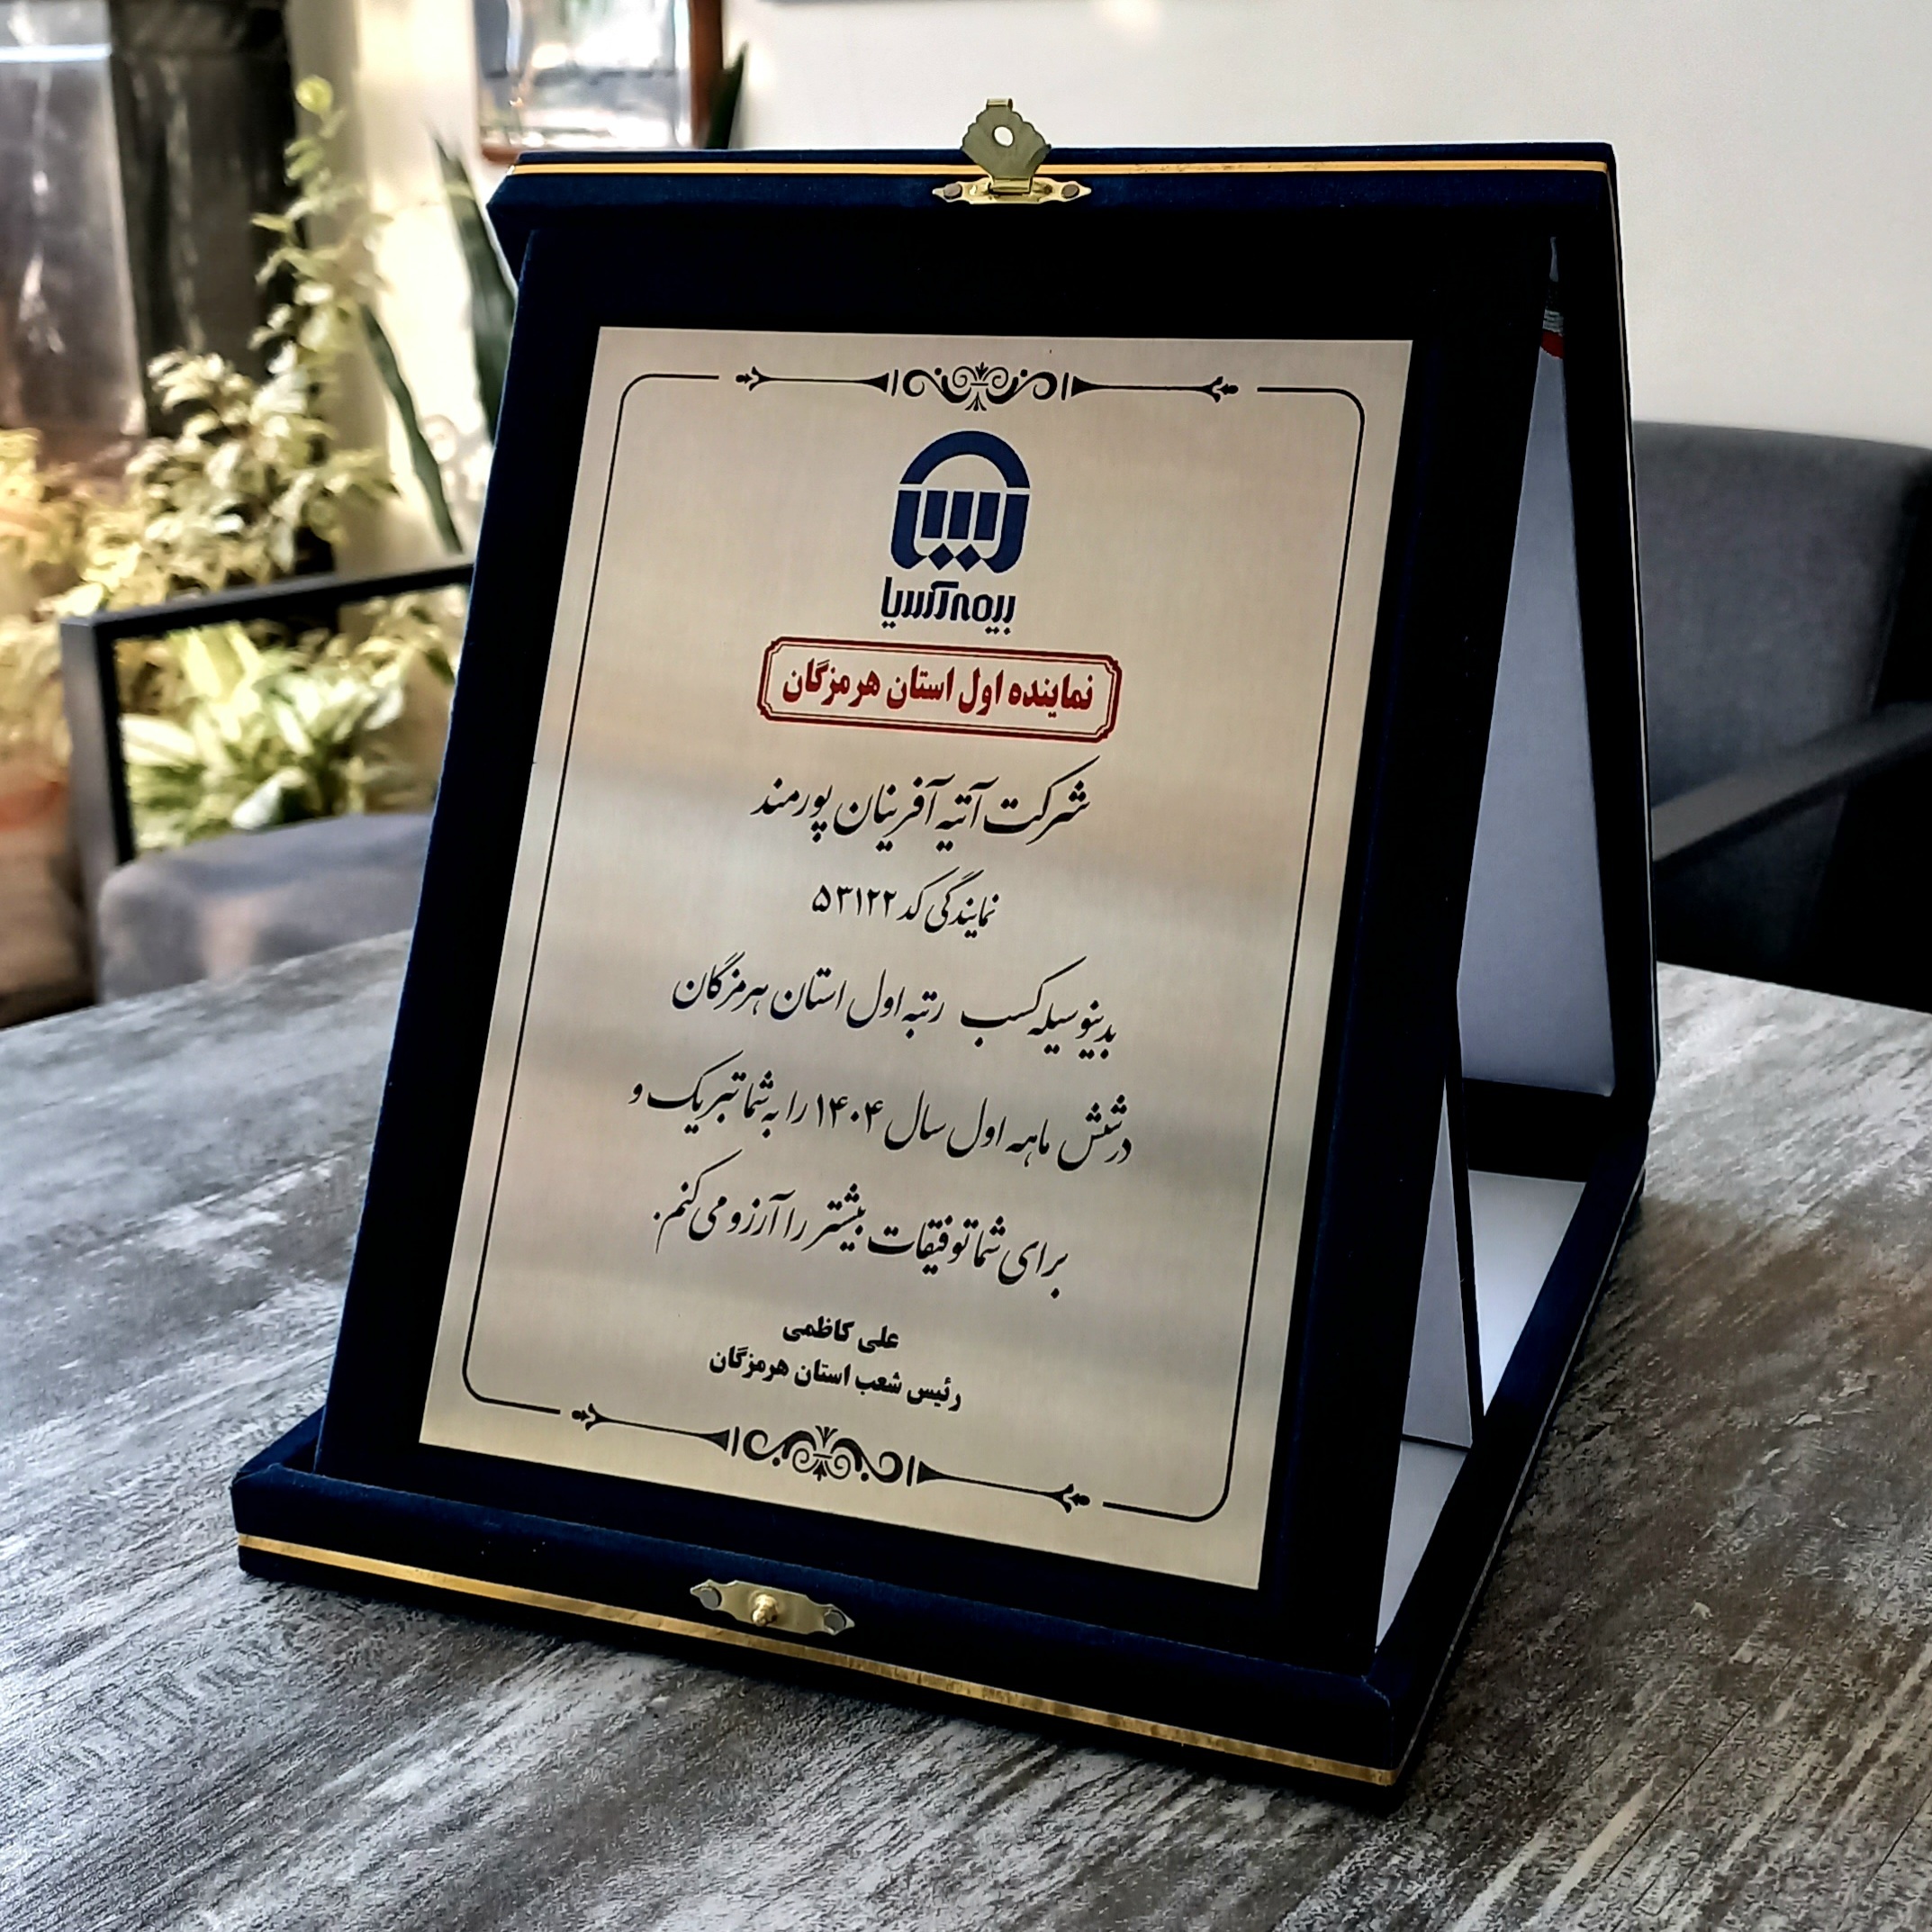 بیمه آسیا
نماینده اول استان هرمزگان
شرکت آتیه آفرینان پورمند
نمایندگی کد ۵۳۱۲۲
بدینوسیله کسب رتبه اول استان هرمزگان
در شش ماهه اول سال ۱۴۰۴ را به شما تبریک و
برای شما توفیقات بیشتر را آرزو می کنم.
علی کاظمی
رئیس شعب استان هرمزگان